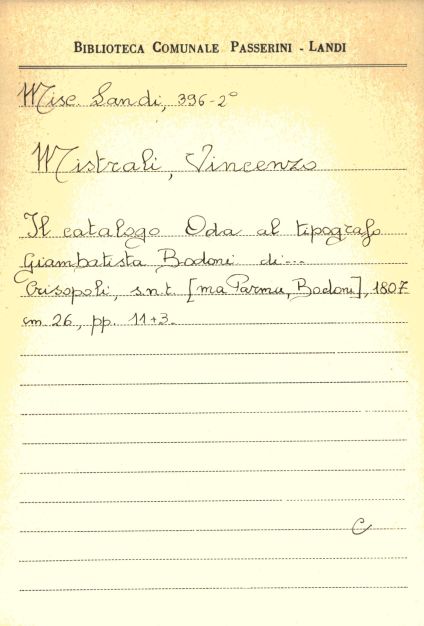 BIBLIOTECA COMUNALE PASSERINI - LANDI
Misc. Landi, 396-2°
Mistrali, Vincenzo
Il catalogo Oda al tipografo
Giambatista Bodoni di...
Crisopoli, s.n.t. [ma Parma, Bodoni], 1807
cm 26, pp. 11+3.
C